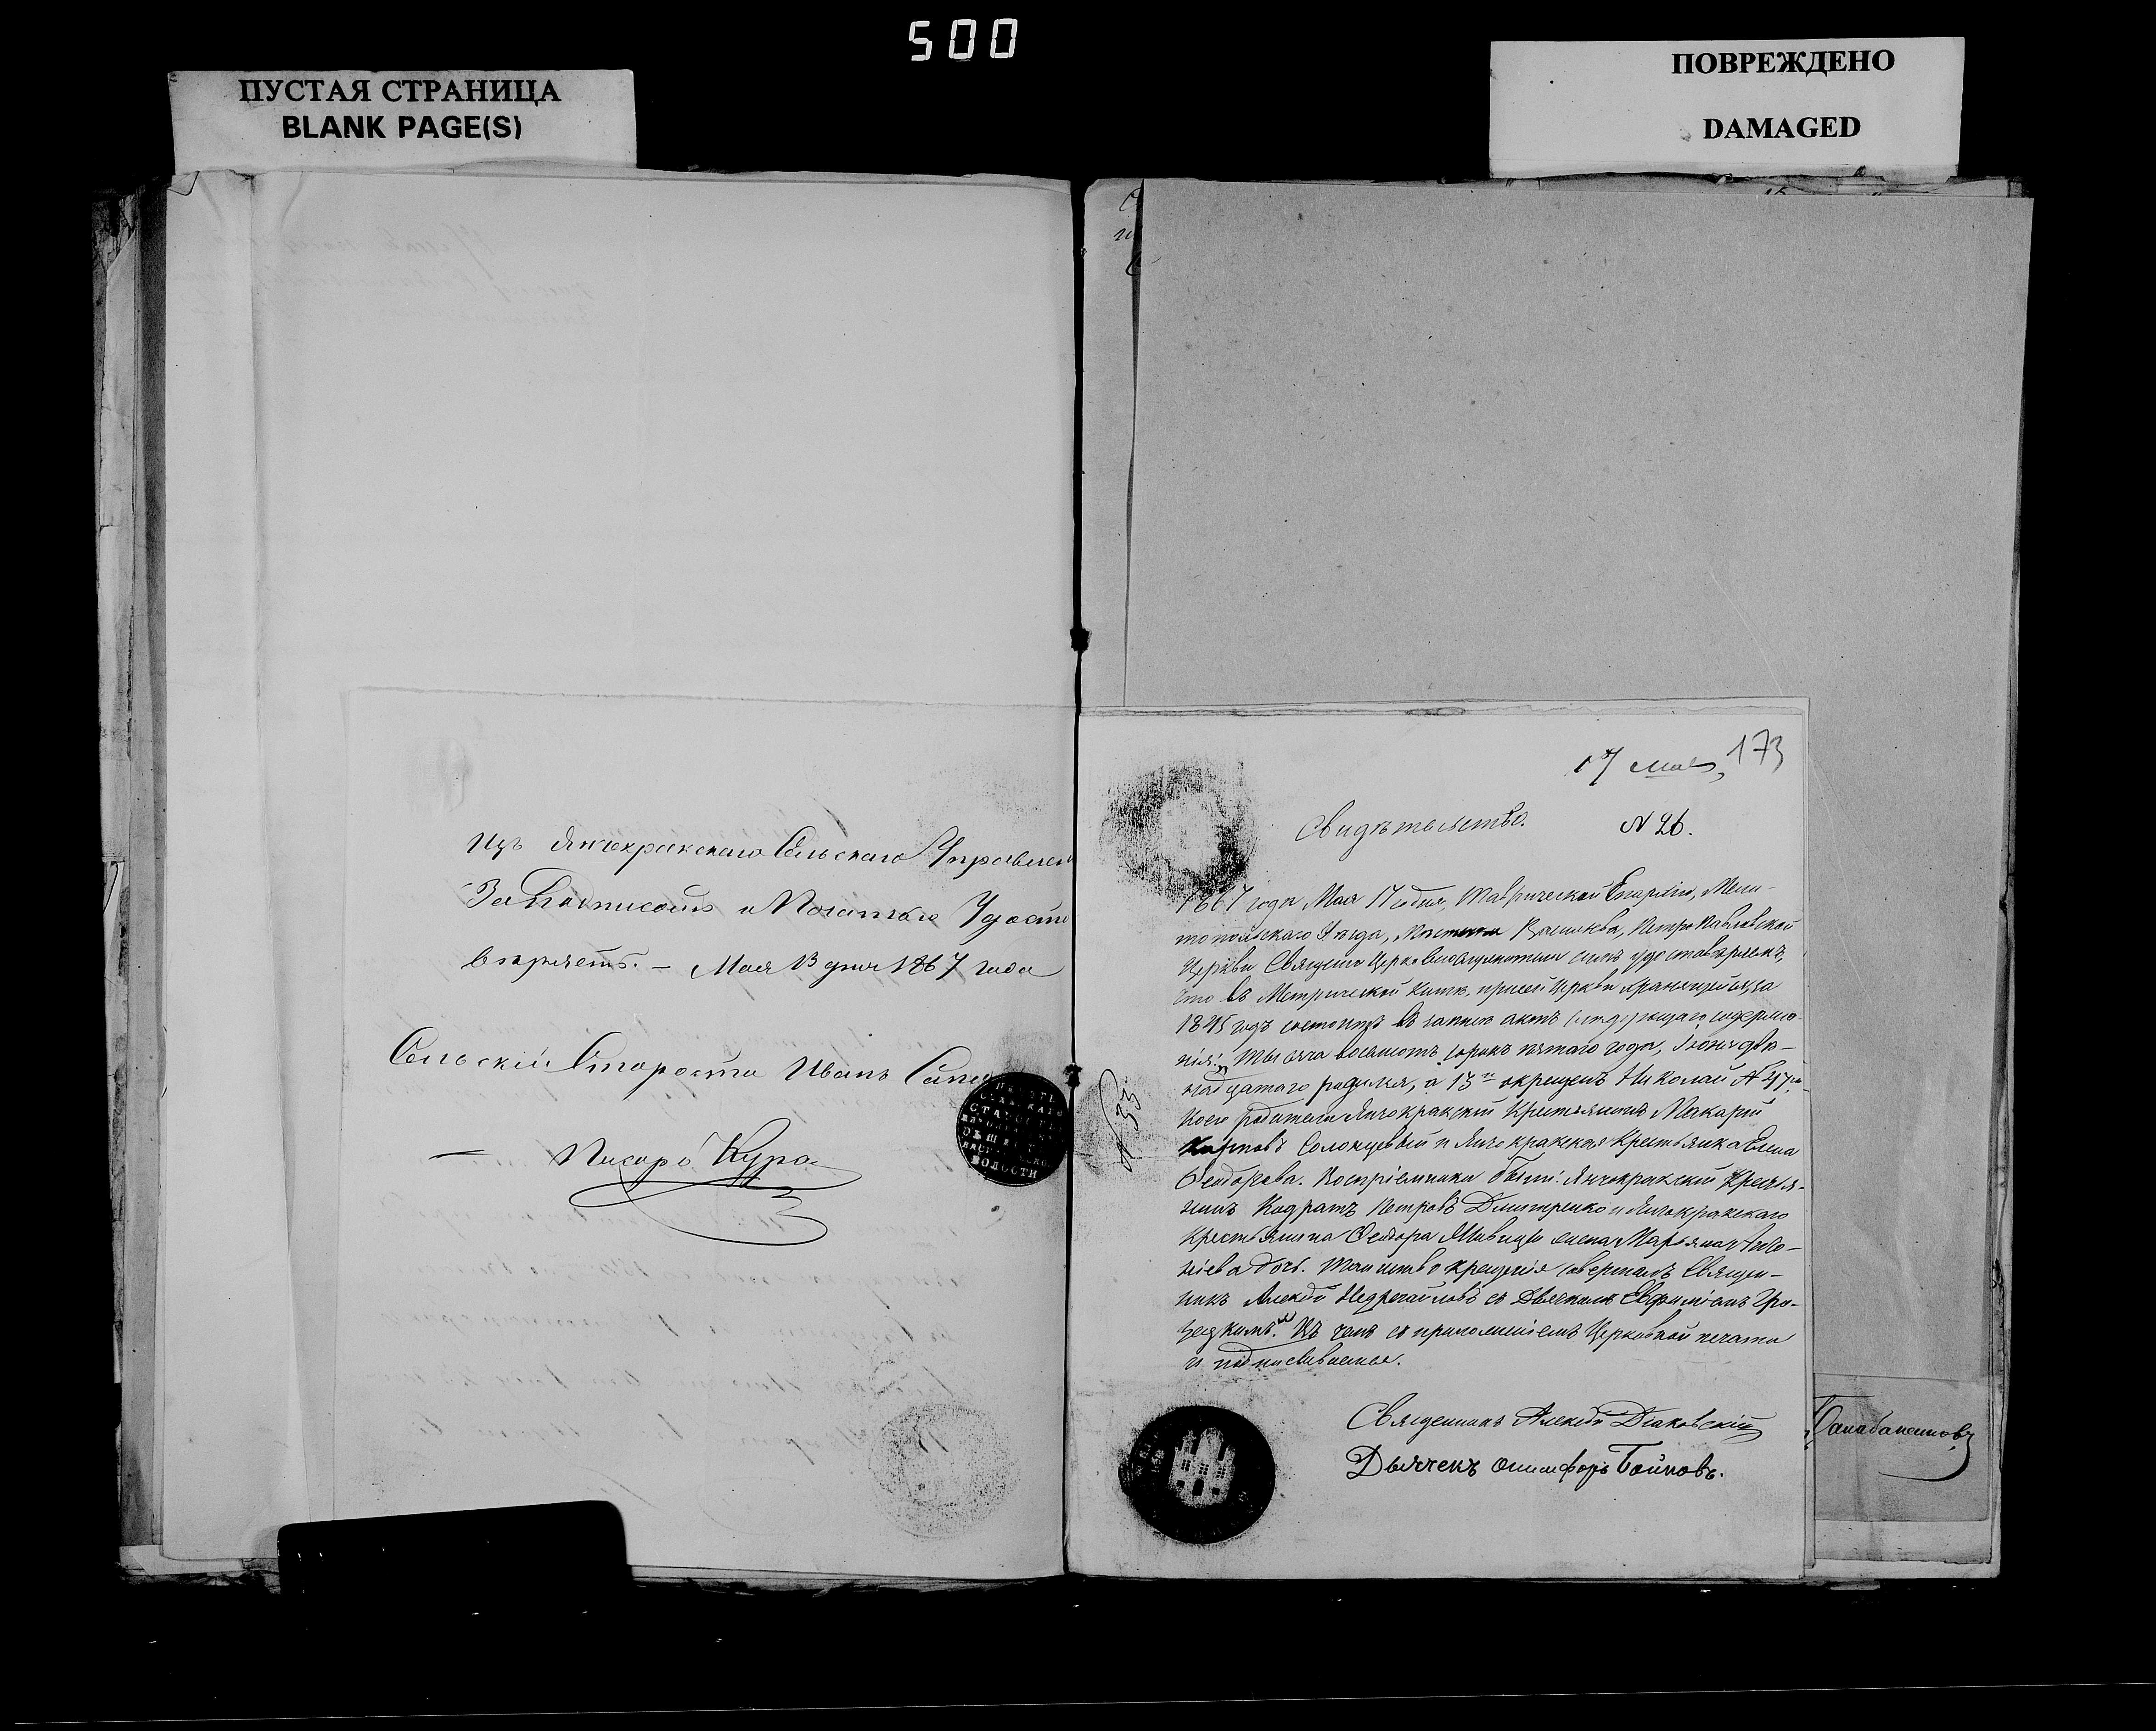 500
ПУСТАЯ СТРАНИЦА
BLANK PAGE(S)
ПОВРЕЖДЕНО
DAMAGED
Изъ Янчекракскаго Сельскаго Управлен
За Подписомъ и Печатью Удосто
веряетъ. — Мая 13 дня 1867 года
Сельскій Староста Иванъ
Писарь Кура
ВОЛОСТИ
17 Мая, 173
Свидѣтельство. N 26.
1867 года Мая 17 дня, Таврической Епархіи, Мели-
топольскаго Уѣзда, Васильевка, Петропавловской
Церкви Священно Церковнослужители симъ удостовѣряемъ,
что въ Метрической книгѣ, при сей Церкви хранящейся, за
1845 годъ состоитъ въ записи актъ слѣдующаго содержа-
нія: Тысяча восемьсотъ сорокъ пятаго года, Іюня две-
надцатаго родился, а 13го окрещенъ Николай
Коего родители Янчокракскій Крестьянинъ Макарій
Карповъ Солонцевый и Янчокракская Крестьянка Елена
Феодорова. Воспріемники были: Янчокракскій Крестья-
нинъ Кодратъ Петровъ Дмитренко и Янчокракскаго
Крестьянина Феодора жена Марьяна Анто-
ніева дочь. Таинство крещенія совершалъ Священ-
никъ Алексій Недригайловъ съ Дьячкомъ Евфиміемъ Гро-
зецкимъ. Въ чемъ съ приложеніемъ Церковной печати
и подписываемся.
N 33
Священникъ Алексій Дьяковскій
Дьячекъ Онисифоръ Бойковъ.